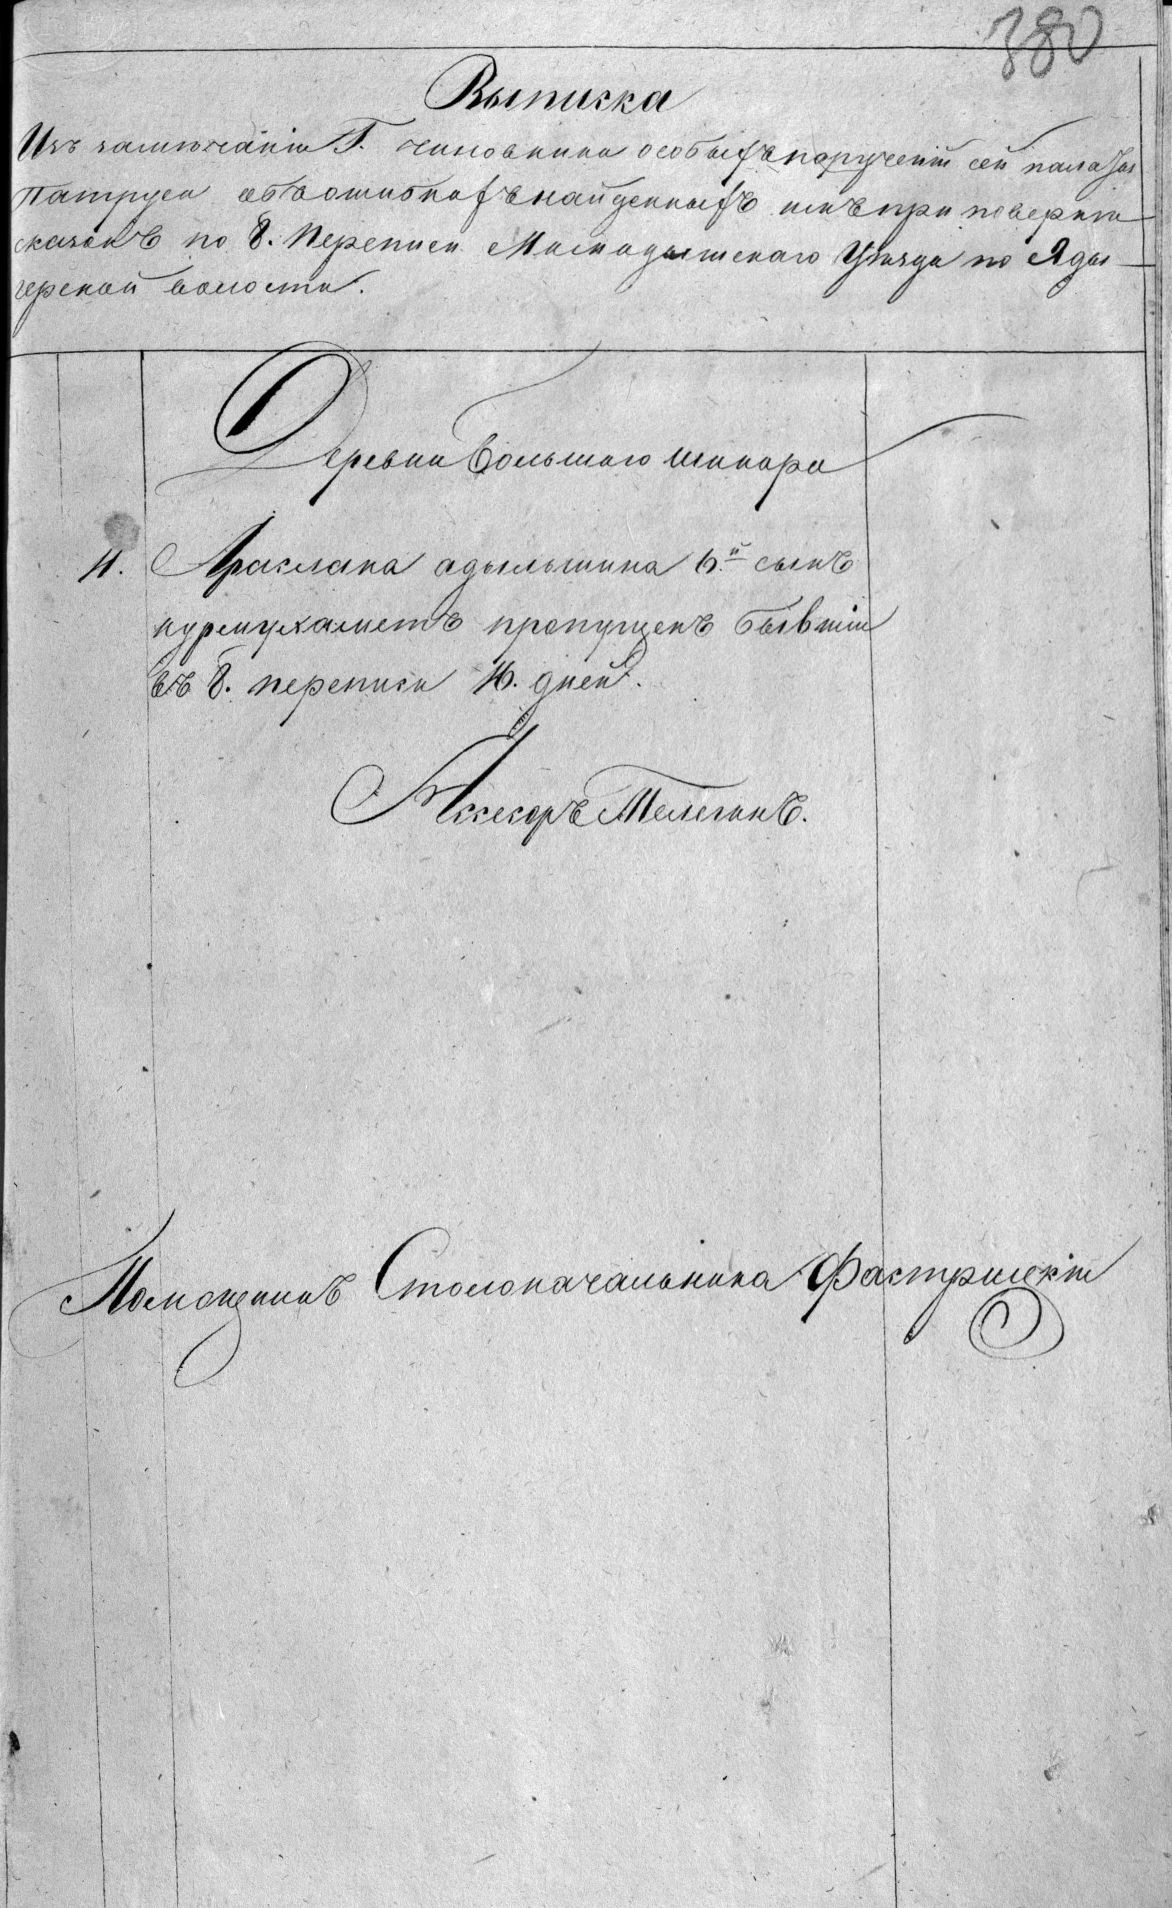 380
Выписка
Изъ замѣчанія Г. чиновника особыхъ порученій сей палаты
Патруева объ ошибкахъ найденныхъ имъ при поверкѣ
сказокъ по 8. переписи Мамадышскаго Уѣзда по Яды
герской волости.
Деревни Большаго шинара
11. Араслана адыльшина 6.й сынъ
нурмухаметъ пропущенъ бывшій
въ 8. переписи 16. дней.
Ассесоръ Телегинъ.
Помощникъ Столоначальника